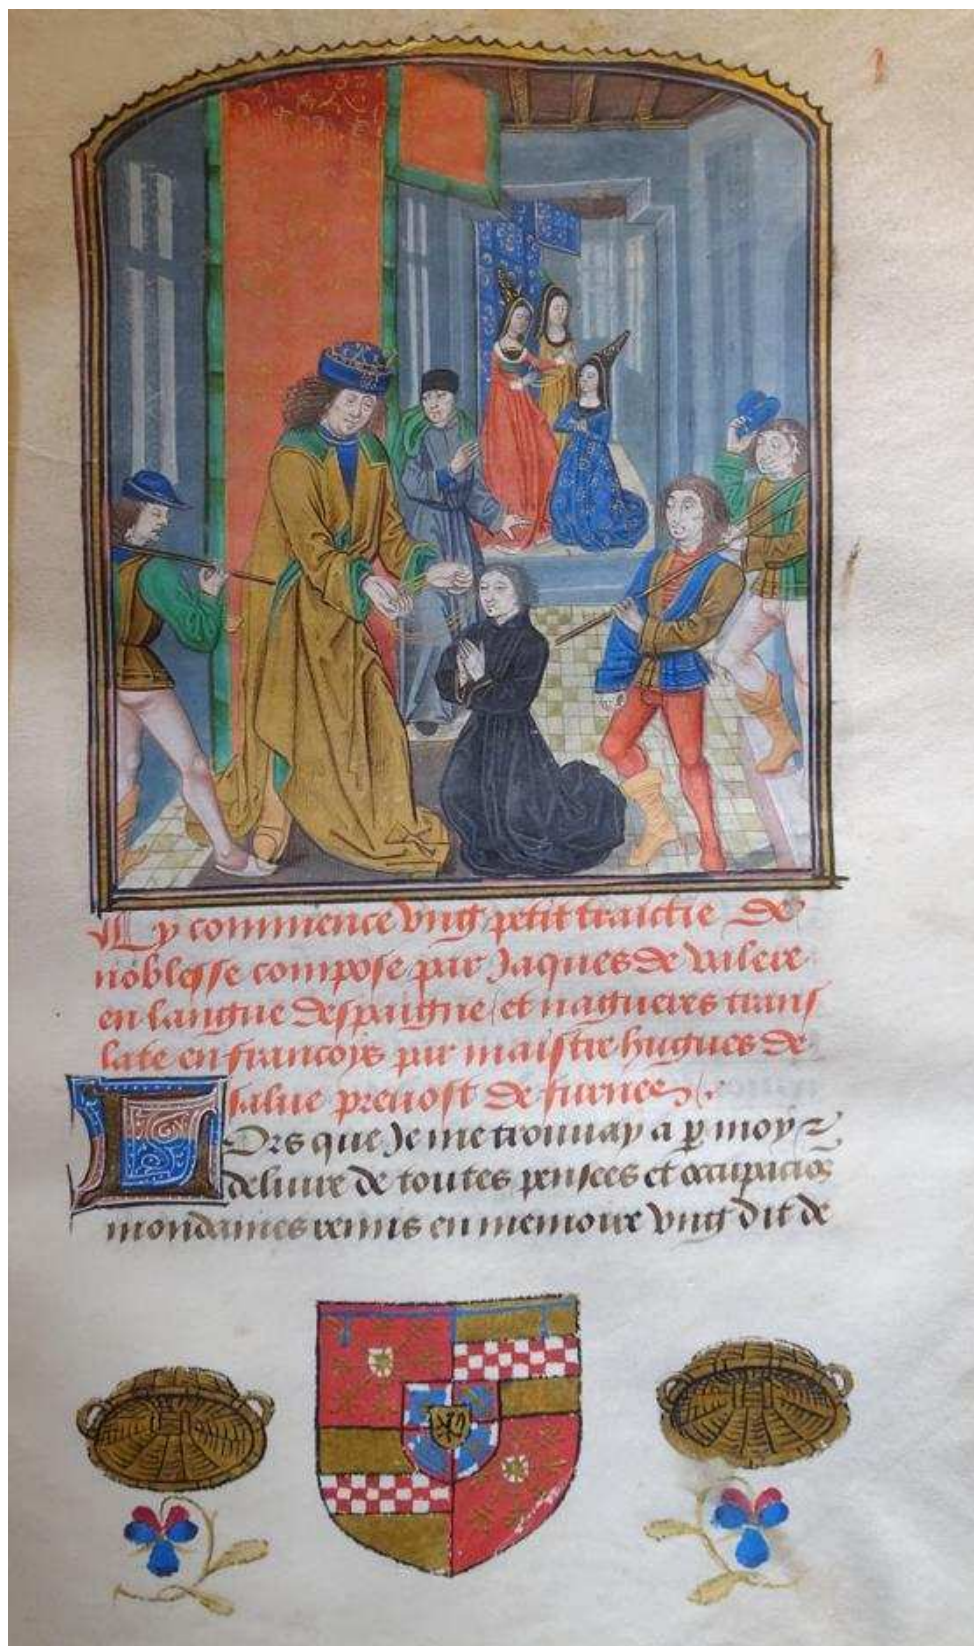 Cy commence vng petit traictie de
noblesse compose par Jaques de valere
en langue despaigne et nagueres trans
late en francoys par maistre hugues de
salue preuost de furnes
Ors que Je me trouuay a p moy
deliure de toutes pensees et occupacios
mondaines remis en memoire vng dit de